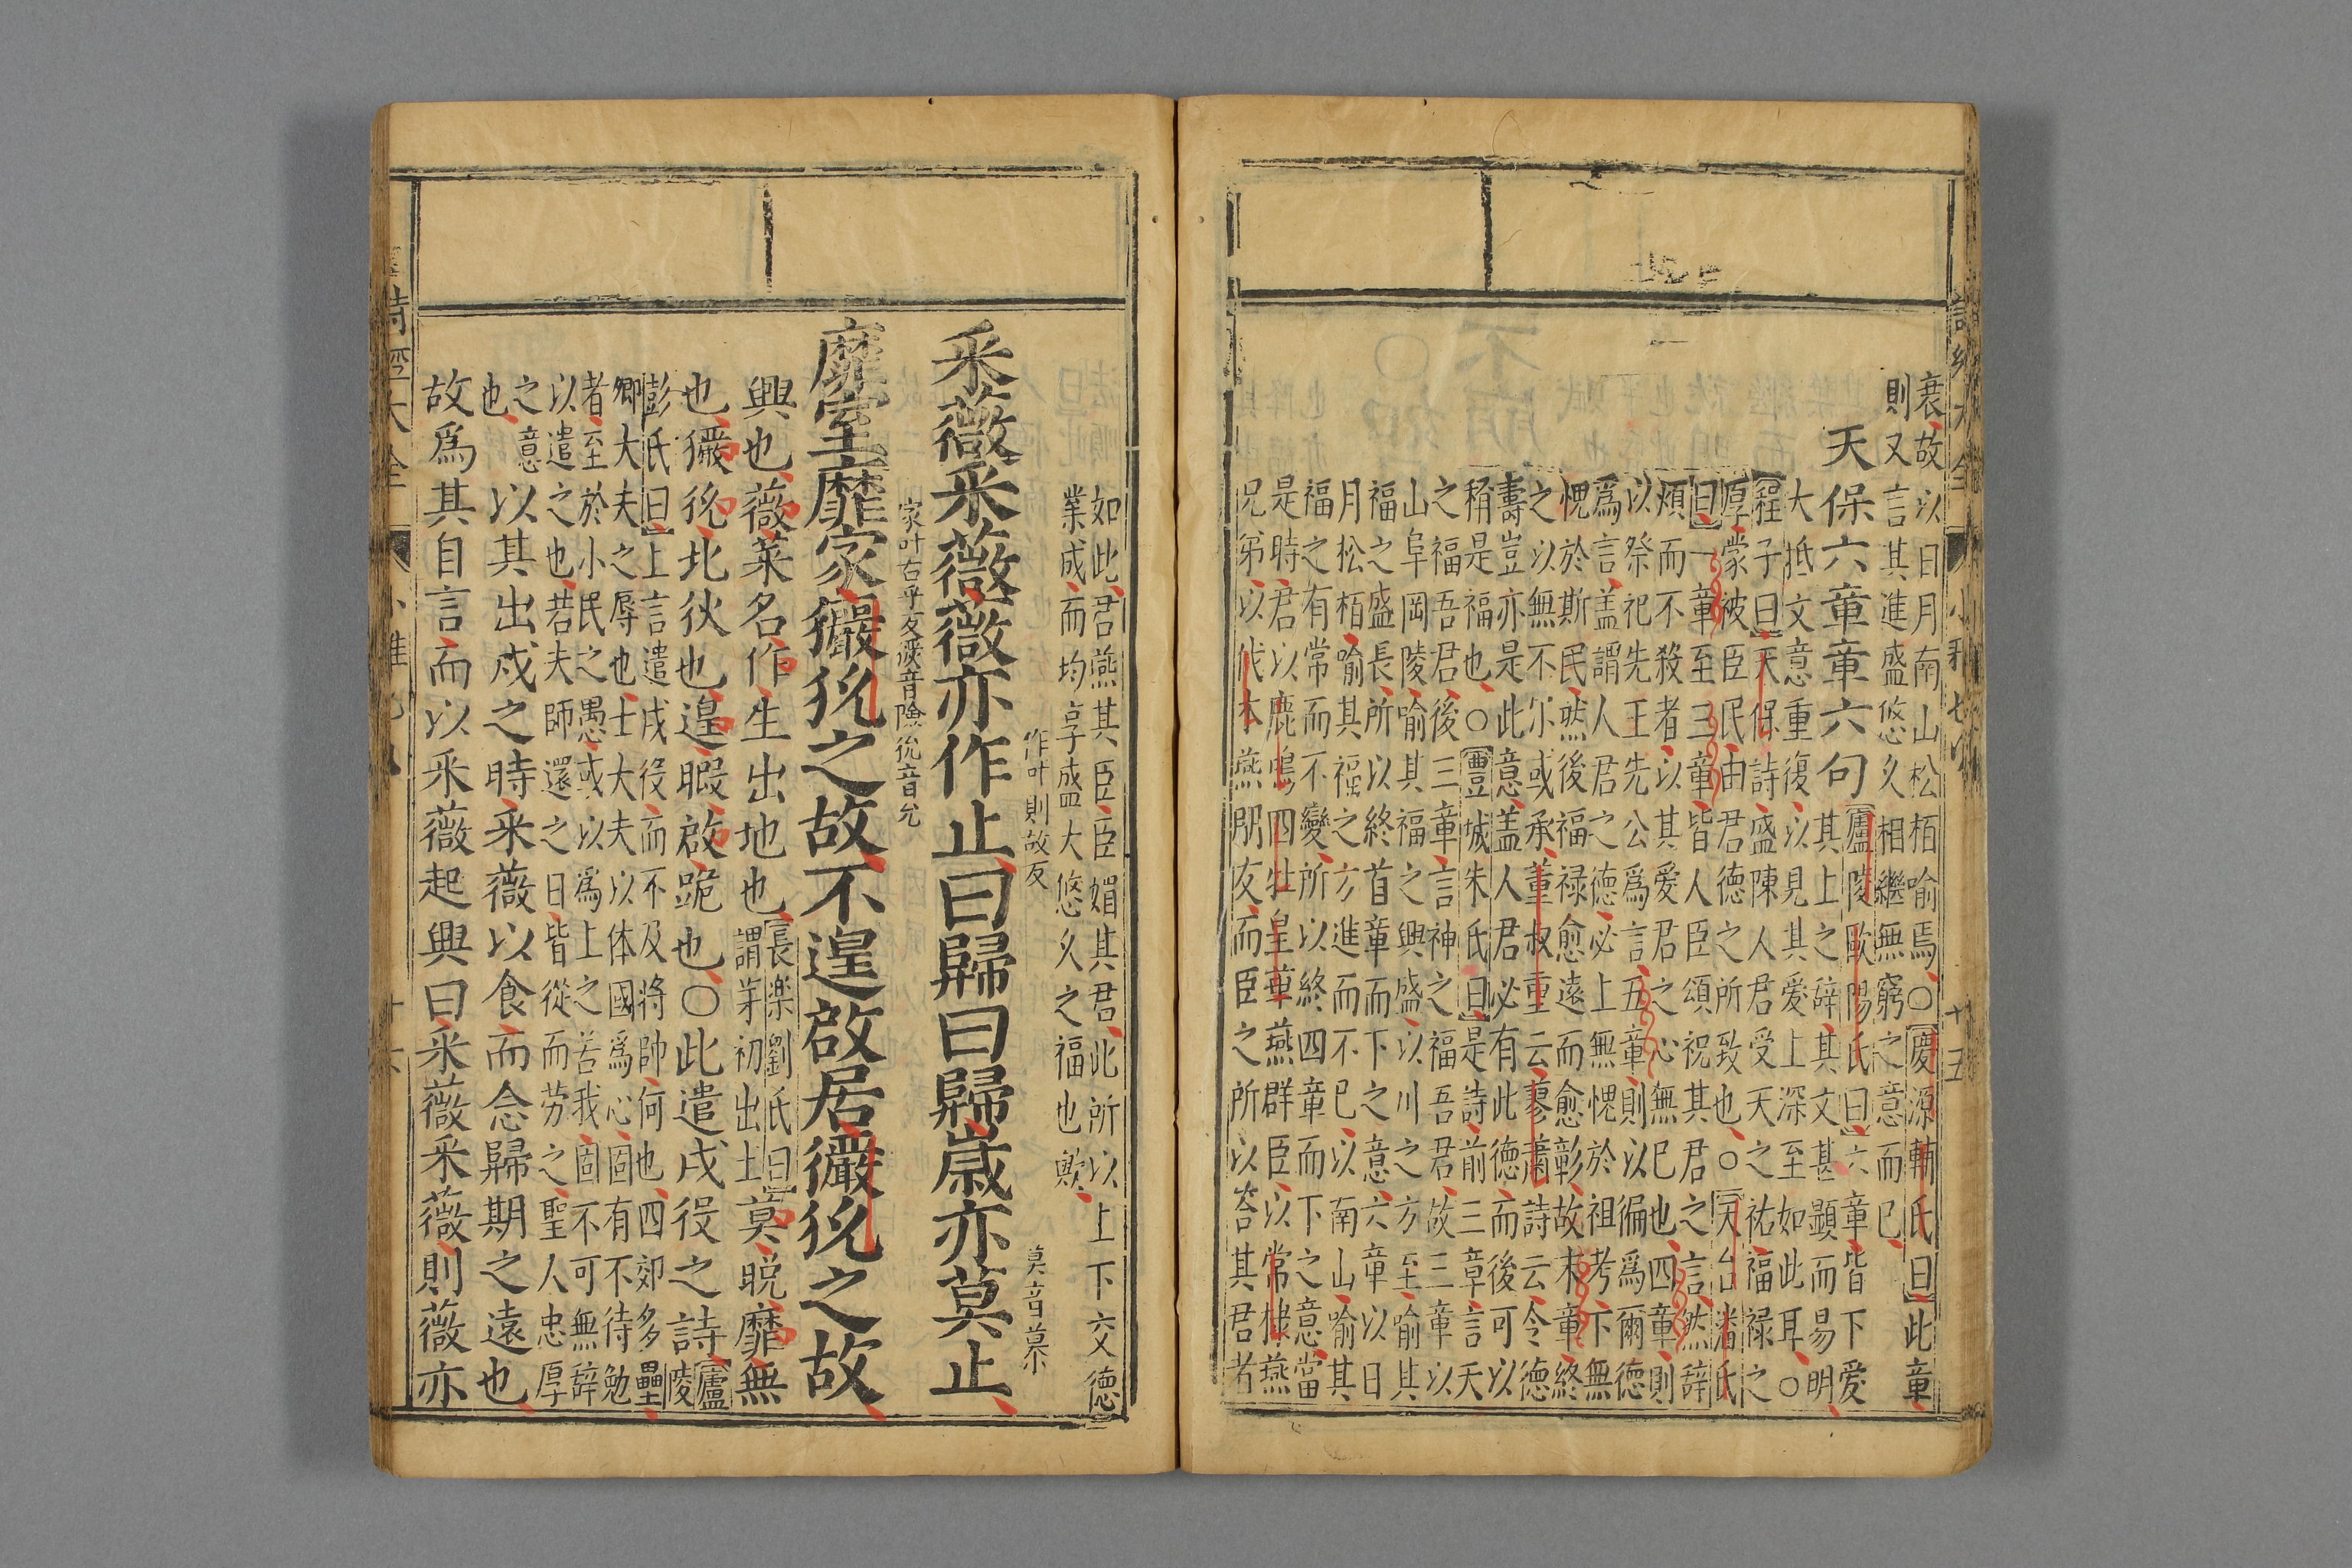 衰故以日月南山松栢喻焉○慶源輔氏曰此章
則又言其進盛悠久相繼無窮之意而已
天保六章章六句
廬陵歐陽氏曰六章皆下愛
其上之辭其文甚顯而易明
大抵文意重復以見其愛上深至如此耳○
程子曰天保詩盛陳人君受天之祐福禄之
厚蒙被臣民由君德之所致也○天台潘氏
曰一章至三章皆人臣頌祝其君之言然辭
煩而不殺者以其愛君之心無已也四章則
以祭祀先王先公爲言五章則以徧爲爾德
爲言盖謂人君之德必上無愧於祖考下無
愧於斯民然後福禄愈遠而愈彰故末章終
之以無不尔或承董叔重云蓼蕭詩云令德
壽豈亦是此意盖人君必有此德而後可以
稱是福也○豐城朱氏曰是詩前三章言天
之福吾君後三章言神之福吾君故三章以
山阜岡陵喻其福之興盛以川之方至喻其
福之盛長所以終首章而下之意六章以日
月松栢喻其福之方進而不已以南山喻其
福之有常而不變所以終四章而下之意當
是時君以鹿鳴四牡皇華燕群臣以常棣燕
兄弟以伐木燕朋友而臣之所以荅其君者
如此君燕其臣臣媚其君此所以上下交德
業成而均享盛大悠久之福也歟
采薇采薇薇亦作止曰歸曰歸歲亦莫止
作叶則故反
莫音慕
靡室靡家玁狁之故不遑啟居玁狁之故
家叶古乎反玁音險狁音允
興也薇菜名作生出地也
長楽劉氏曰
謂芽初出土
莫晚靡無
也玁狁北狄也遑暇啟跪也○此遣戍役之詩
廬陵
彭氏曰上言遣戍役而不及將帥何也四郊多壘
卿大夫之辱也士大夫以体國爲心固有不待勉
者至於小民之愚或以爲上之苦我固不可無辭
以遣之也若夫師還之日皆從而劳之聖人忠厚
之意
也
以其出戍之時采薇以食而念歸期之遠也
故爲其自言而以采薇起興曰采薇采薇則薇亦
詩經大全
十五
十六